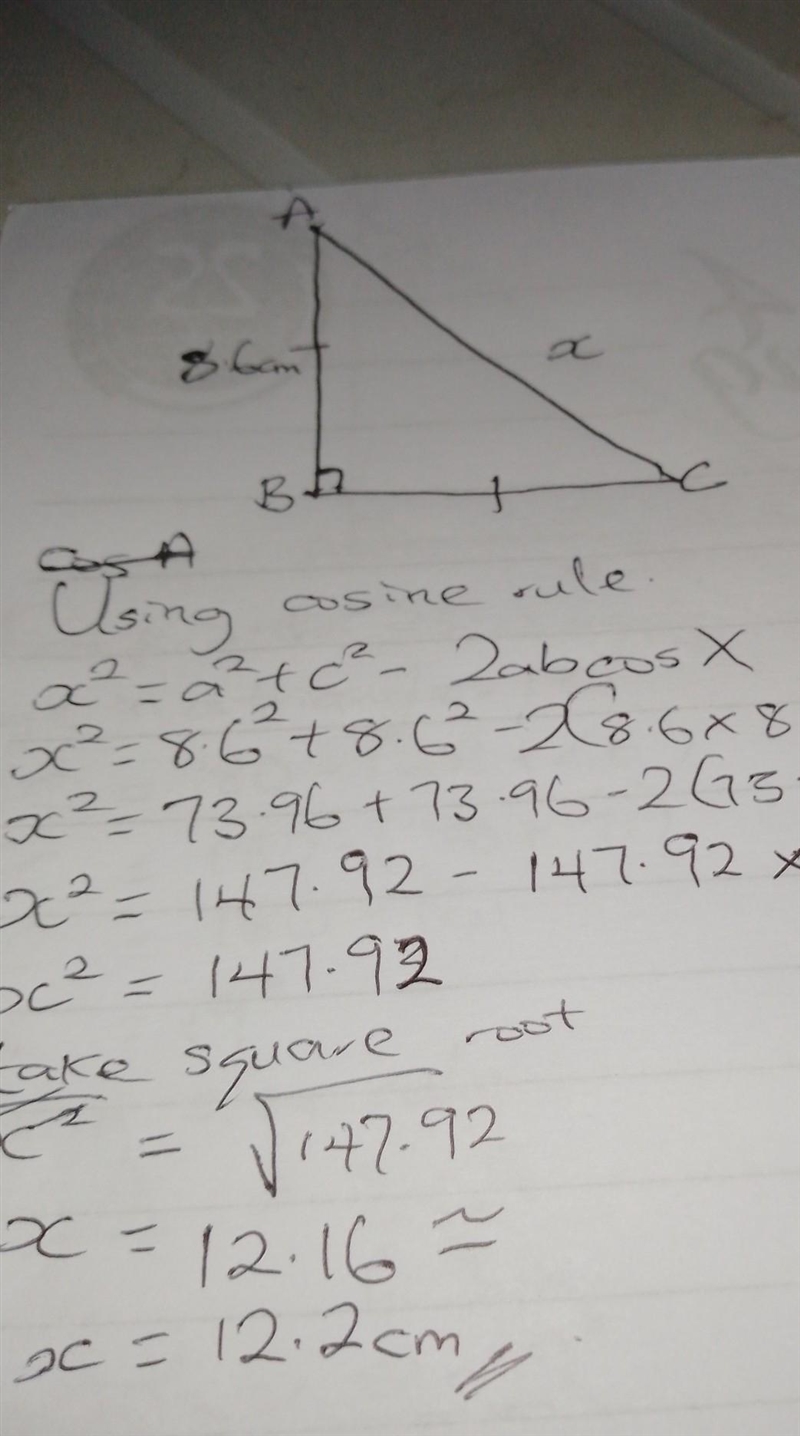 A
8.6cm
x
B
C
Cos A
Using cosine rule.
x² = a² + c² - 2abcosX
x² = 8.6² + 8.6² - 2(8.6 x 8
x² = 73.96 + 73.96 - 2(73.
x² = 147.92 - 147.92 x
x² = 147.92
take square root
x² = √147.92
x = 12.16 ≃
x = 12.2cm